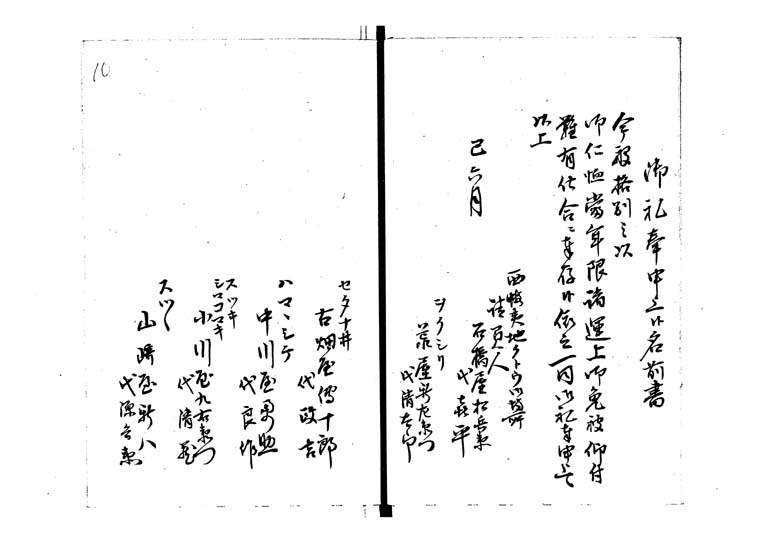 御礼奉申上候名前書
今般格別之以
御仁恤当年限諸運上御免被仰付
難有仕合ニ奉存候依之一同御礼奉申上候
以上
巳六月
西蝦夷地クトウ御場所
請負人
石橋屋松兵衛
代 喜平
ヲクシリ
荒屋新左衛門
代 清右衛門
セタナ井
古畑屋傳十郎
代 政吉
ハママシケ
中川屋勇助
代 良作
スツキ
シマコマキ
小川屋九右衛門
代 清蔵
スツツ
山崎屋新八
代 源兵衛
10